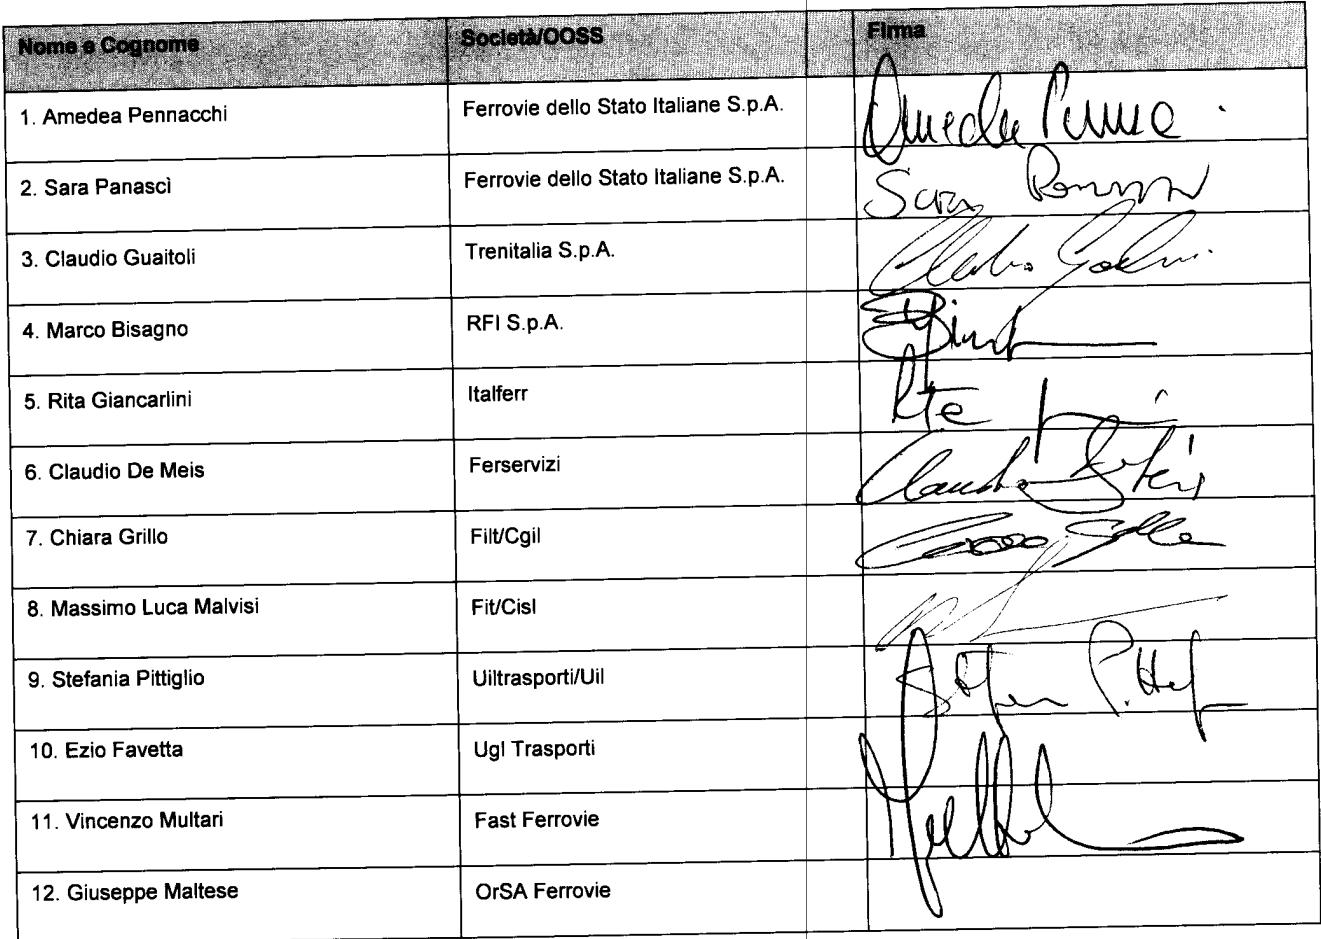 Nome e Cognome Società/OOSS Firma
1. Amedea Pennacchi Ferrovie dello Stato Italiane S.p.A.
2. Sara Panascì Ferrovie dello Stato Italiane S.p.A. Sara
3. Claudio Guaitoli Trenitalia S.p.A.
4. Marco Bisagno RFI S.p.A.
5. Rita Giancarlini Italferr
6. Claudio De Meis Ferservizi
7. Chiara Grillo Filt/Cgil
8. Massimo Luca Malvisi Fit/Cisl
9. Stefania Pittiglio Uiltrasporti/Uil
10. Ezio Favetta Ugl Trasporti
11. Vincenzo Multari Fast Ferrovie
12. Giuseppe Maltese OrSA Ferrovie